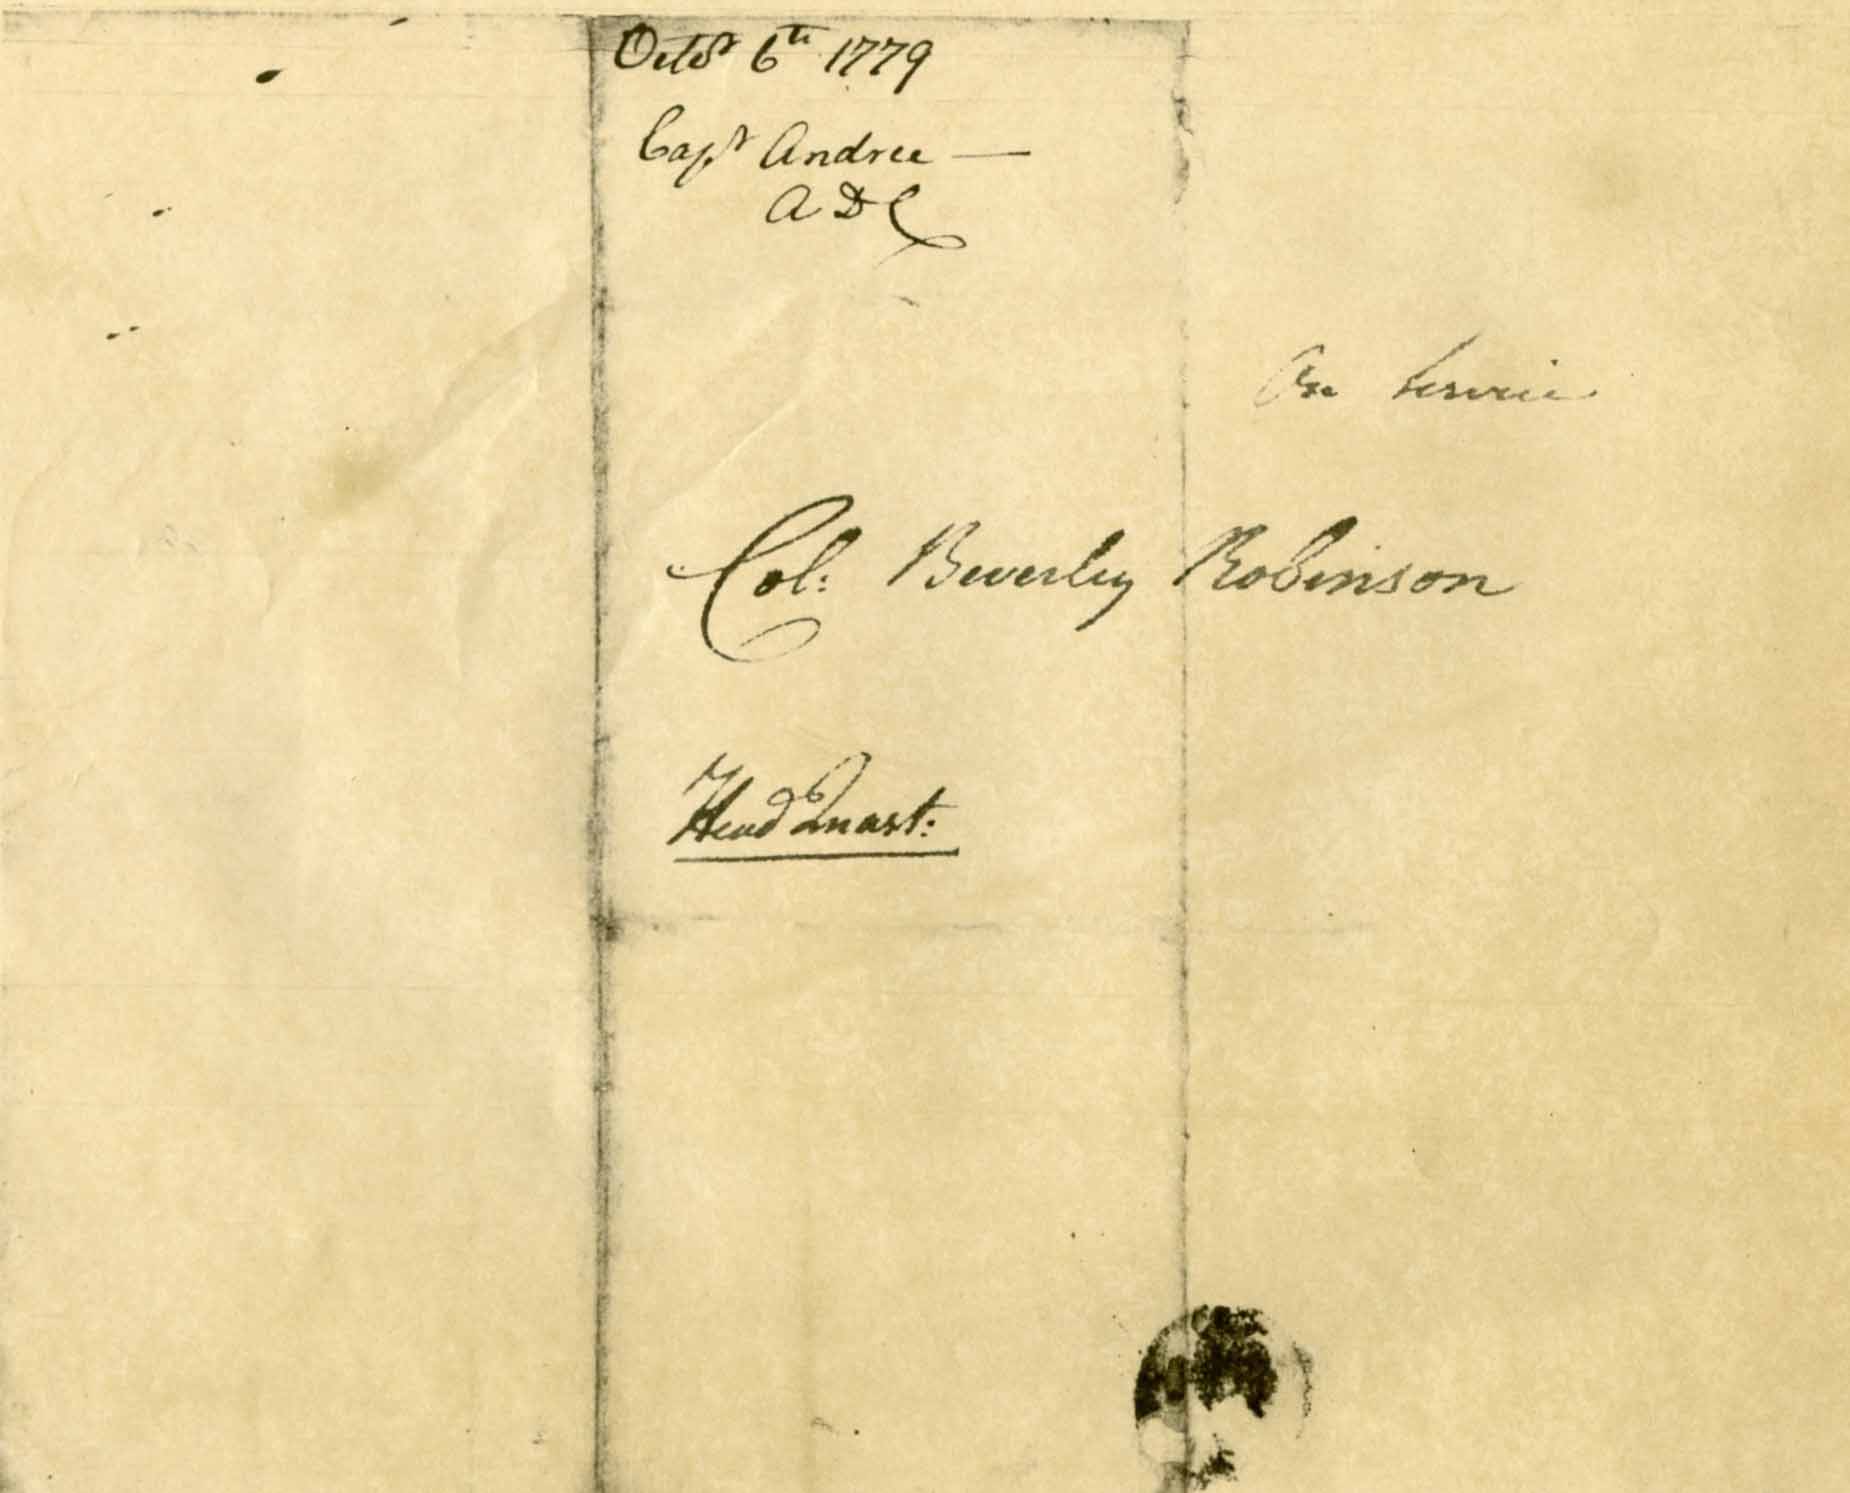 Octobr 6th 1779
Capt Andree —
ADC
On Service
Col: Beverley Robinson
Head Quart: